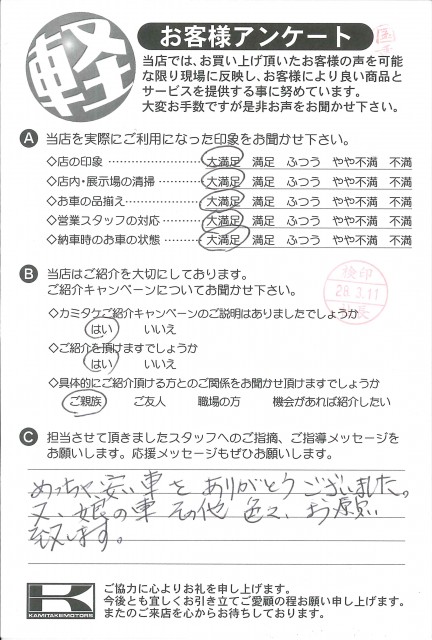 軽
お客様アンケート
当店では、お買い上げ頂いたお客様の声を可能
な限り現場に反映し、お客様により良い商品と
サービスを提供する事に努めています。
大変お手数ですが是非お声をお聞かせ下さい。
A 当店を実際にご利用になった印象をお聞かせ下さい。
◇店の印象 大満足 満足 ふつう やや不満 不満
◇店内・展示場の清掃 大満足 満足 ふつう やや不満 不満
◇お車の品揃え 大満足 満足 ふつう やや不満 不満
◇営業スタッフの対応 大満足 満足 ふつう やや不満 不満
◇納車時のお車の状態 大満足 満足 ふつう やや不満 不満
B 当店はご紹介を大切にしております。
ご紹介キャンペーンについてお聞かせ下さい。
検印
28.3.11
◇カミタケご紹介キャンペーンのご説明はありましたでしょうか
はい いいえ
◇ご紹介を頂けますでしょうか
はい いいえ
◇具体的にご紹介頂ける方とのご関係をお聞かせ頂けますでしょうか
ご親族 ご友人 職場の方 機会があれば紹介したい
C 担当させて頂きましたスタッフへのご指摘、ご指導メッセージを
お願いします。応援メッセージもぜひお願いします。
めっちゃ、安い車を ありがとう ございました。
又、娘の車 その他 色々、お願い
致します。
K
KAMITAKEMOTORS
ご協力に心よりお礼を申し上げます。
今後とも宜しくお引き立てご愛顧の程お願い申し上げます。
またのご来店を心からお待ちしております。